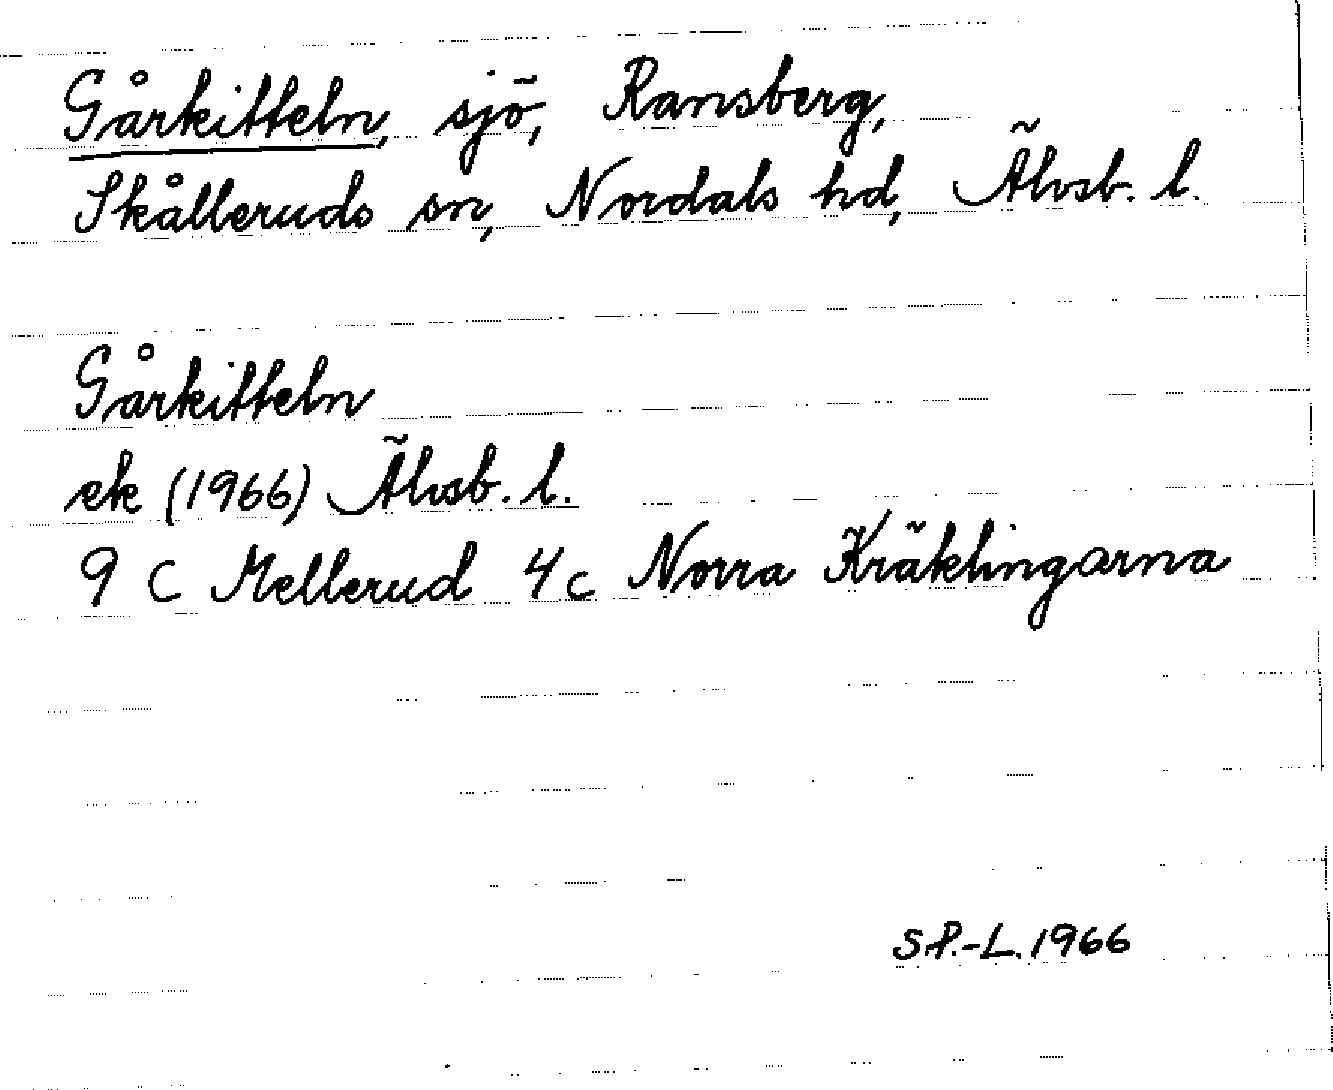 Gårkitteln, sjö, Ransberg,
Skålleruds sn, Nordals hd, Älvsb. l.
Gårkitteln
ek (1966) Älvsb. l.
9 C Mellerud 4c Norra Kräklingarna
S.P.-L. 1966